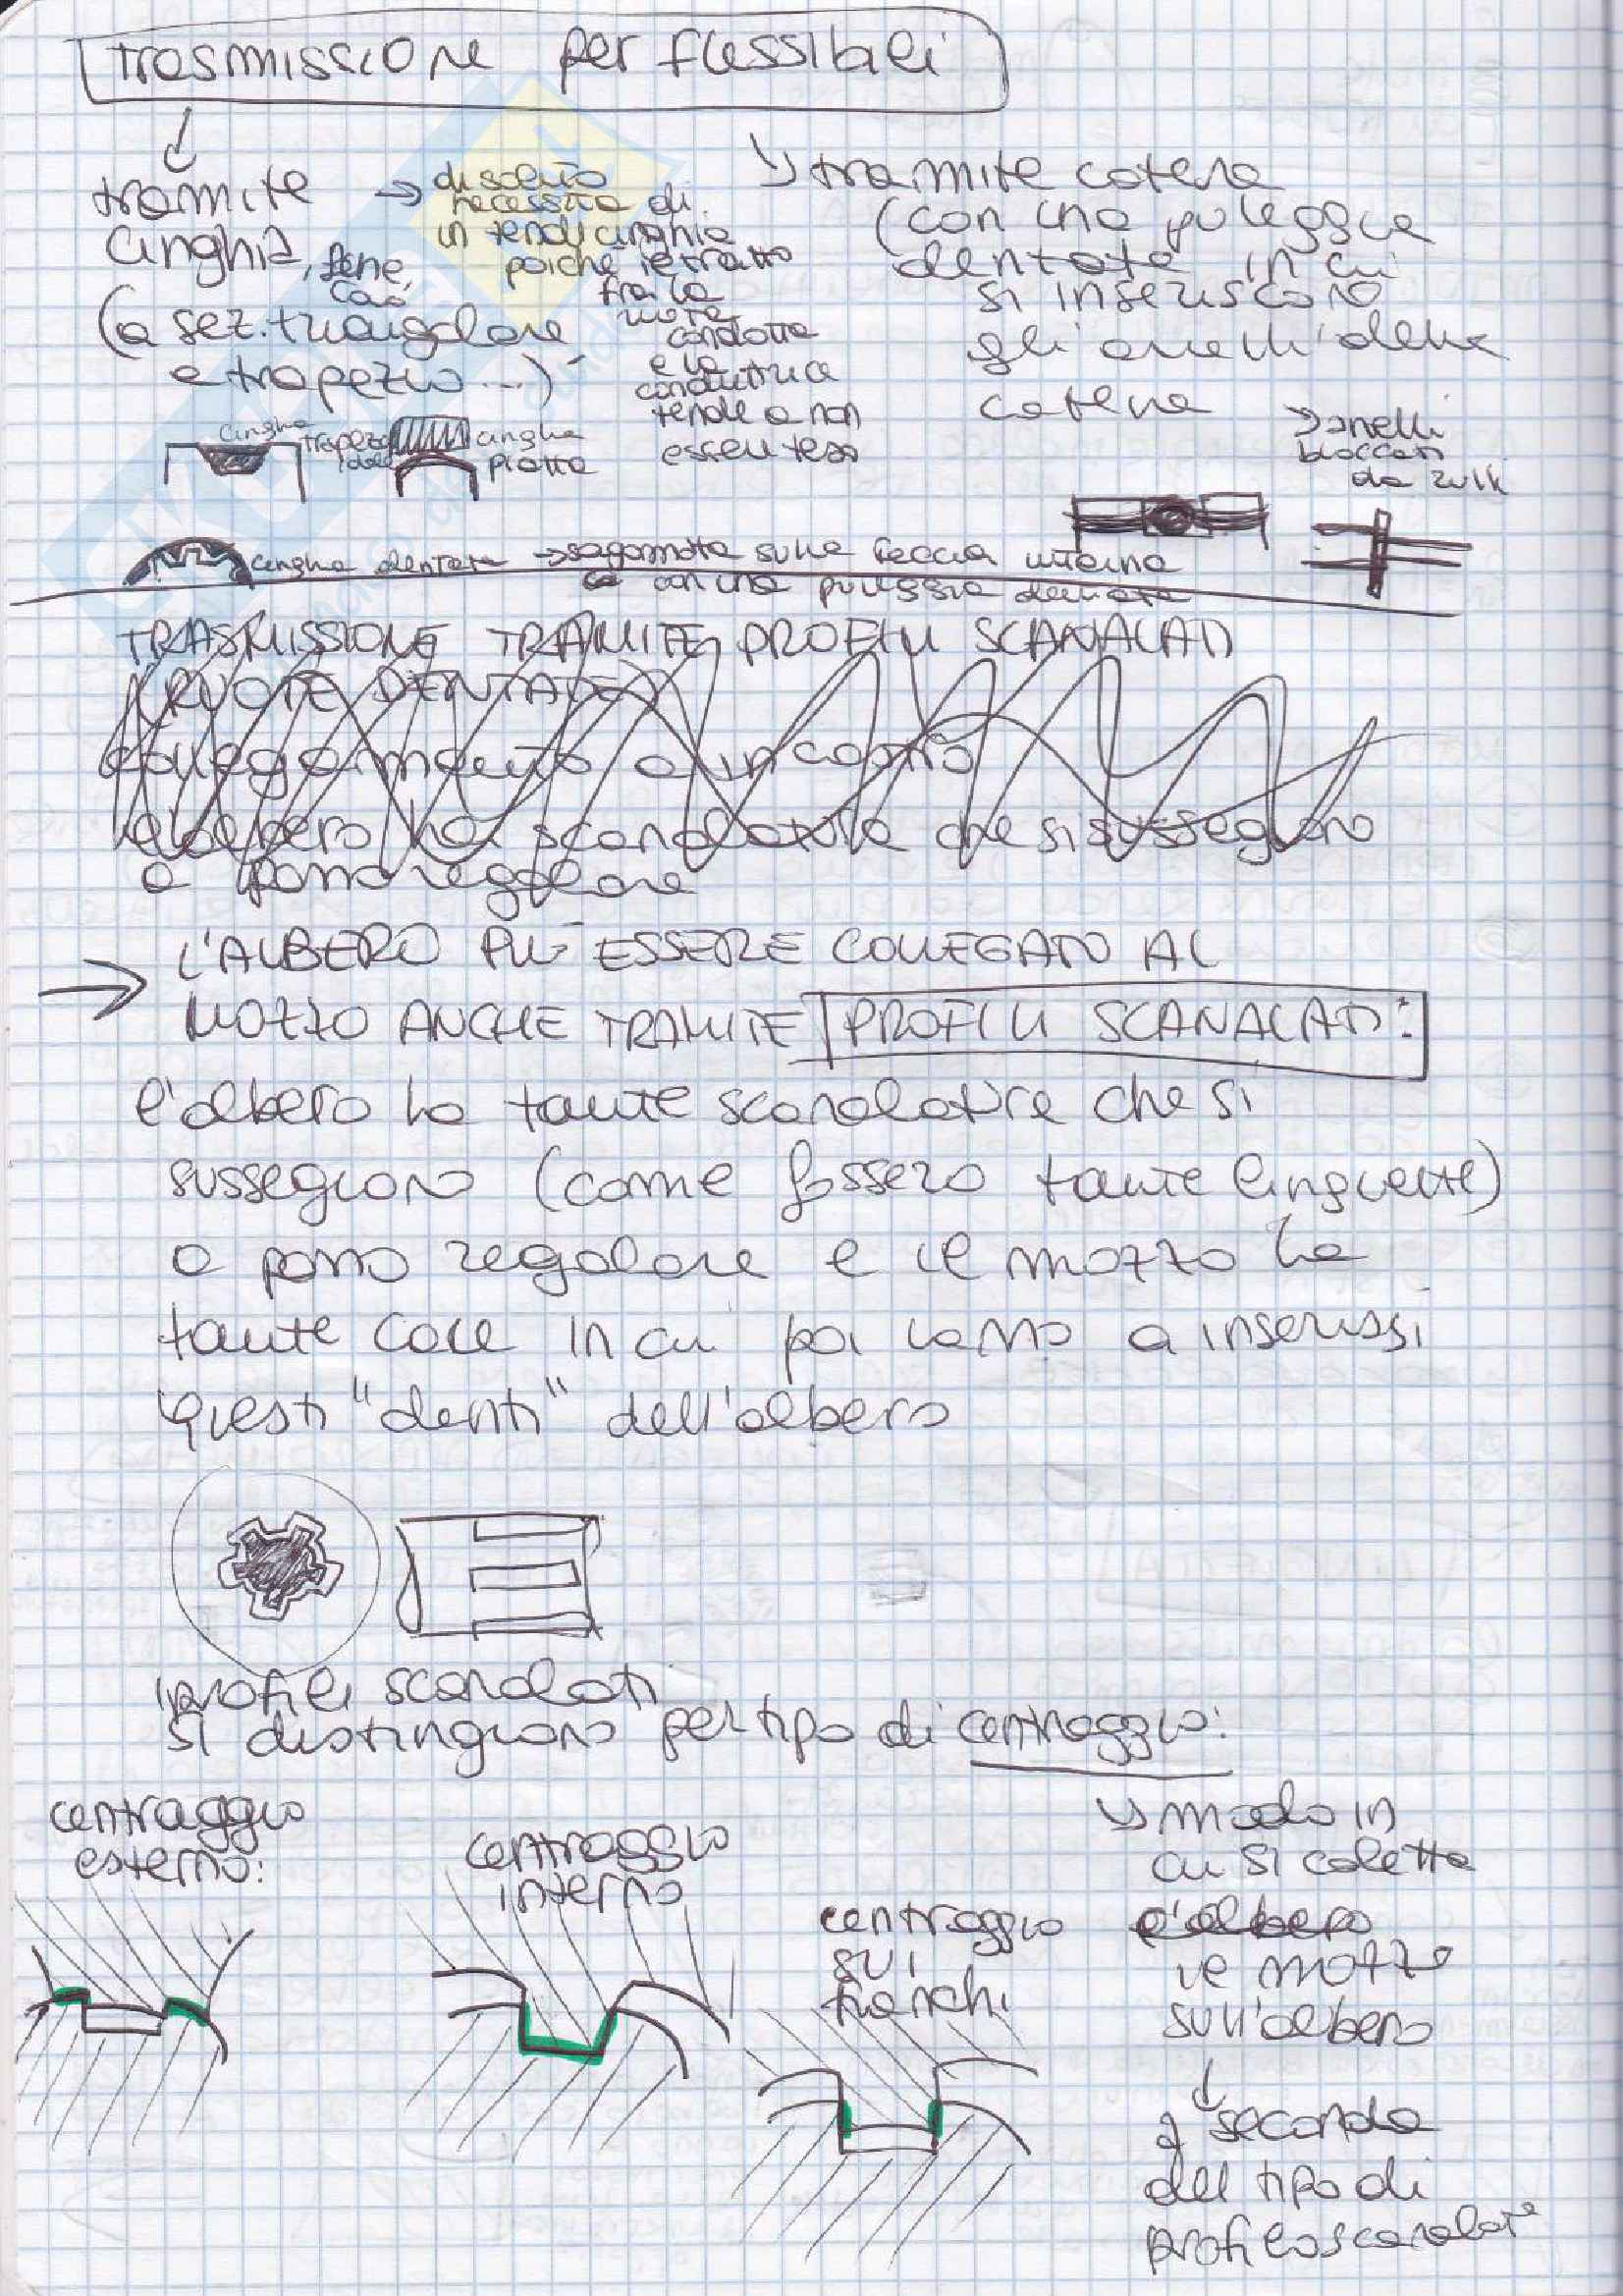 trasmissione per flessibili
tramite
cinghia, fune,
cavo
(a sez. triangolare
a trapezio...)
→ di solito
necessita di
un tendicinghia
poiché il tratto
fra la
ruota
condotta
e la
conduttrice
tende a non
essere teso
tramite catena
(con una puleggia
dentata in cui
si inseriscono
gli anelli della
catena
→ anelli
bloccati
da rulli
cinghia
trapezoidale
cinghia
piatta
cinghia dentata → sagomata sulla faccia interna
con una puleggia dentata
TRASMISSIONE TRAMITE PROFILI SCANALATI
(RUOTE DENTATE)
collegamento a incastro
l'albero ha scanalature che si susseguono
a passo regolare
→ L'ALBERO PUÒ ESSERE COLLEGATO AL
MOZZO ANCHE TRAMITE PROFILI SCANALATI:
l'albero ha tante scanalature che si
susseguono (come fossero tante linguette)
a passo regolare e il mozzo ha
tante cave in cui poi vanno a inserirsi
questi "denti" dell'albero
i profili scanalati
si distinguono per tipo di centraggio:
centraggio
esterno:
centraggio
interno
centraggio
sui
fianchi
→ modo in
cui si caletta
l'albero
il mozzo
sull'albero
↓
a seconda
del tipo di
profilo scanalato